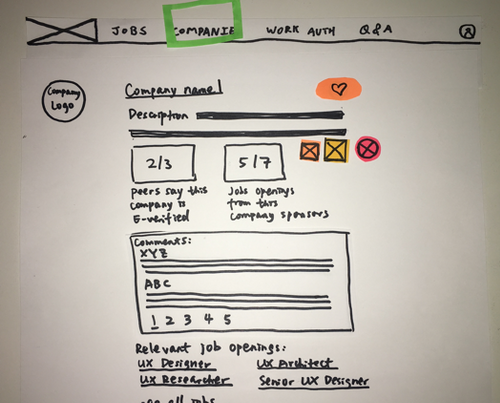 JOBS COMPANIE WORK AUTH Q&A
Company Logo
Company name1
Description
2/3 5/7
peers say this company is E-verified
Jobs openings from this Company sponsors
Comments:
XYZ
ABC
1 2 3 4 5
Relevant job openings:
UX Designer UX Architect
UX Researcher Senior UX Designer
see all jobs